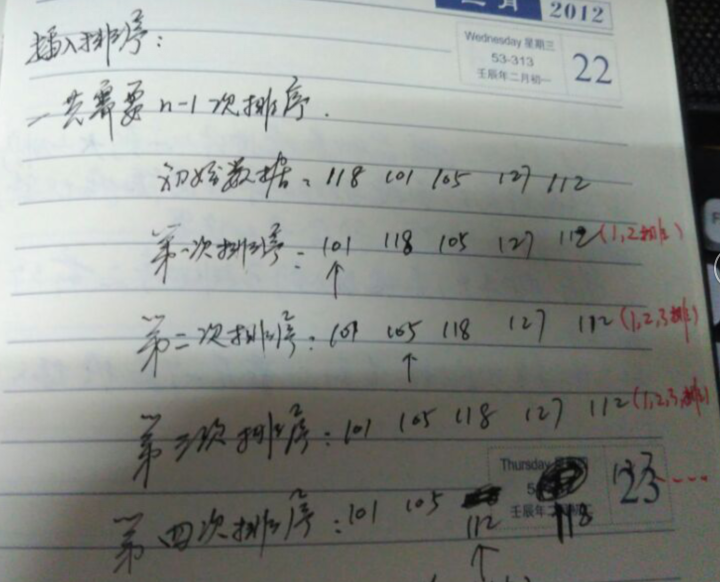 2012
Wednesday 星期三
53-313
壬辰年二月初一
22
插入排序:
一共需要 n-1 次排序.
初始数据: 118 101 105 127 112
第一次排序: 101 118 105 127 112 (1,2排好)
↑
第二次排序: 101 105 118 127 112 (1,2,3排好)
↑
第三次排序: 101 105 118 127 112 (1,2,3,排好)
Thursday
23
壬辰年二
第四次排序: 101 105 112 118 127 ----
↑